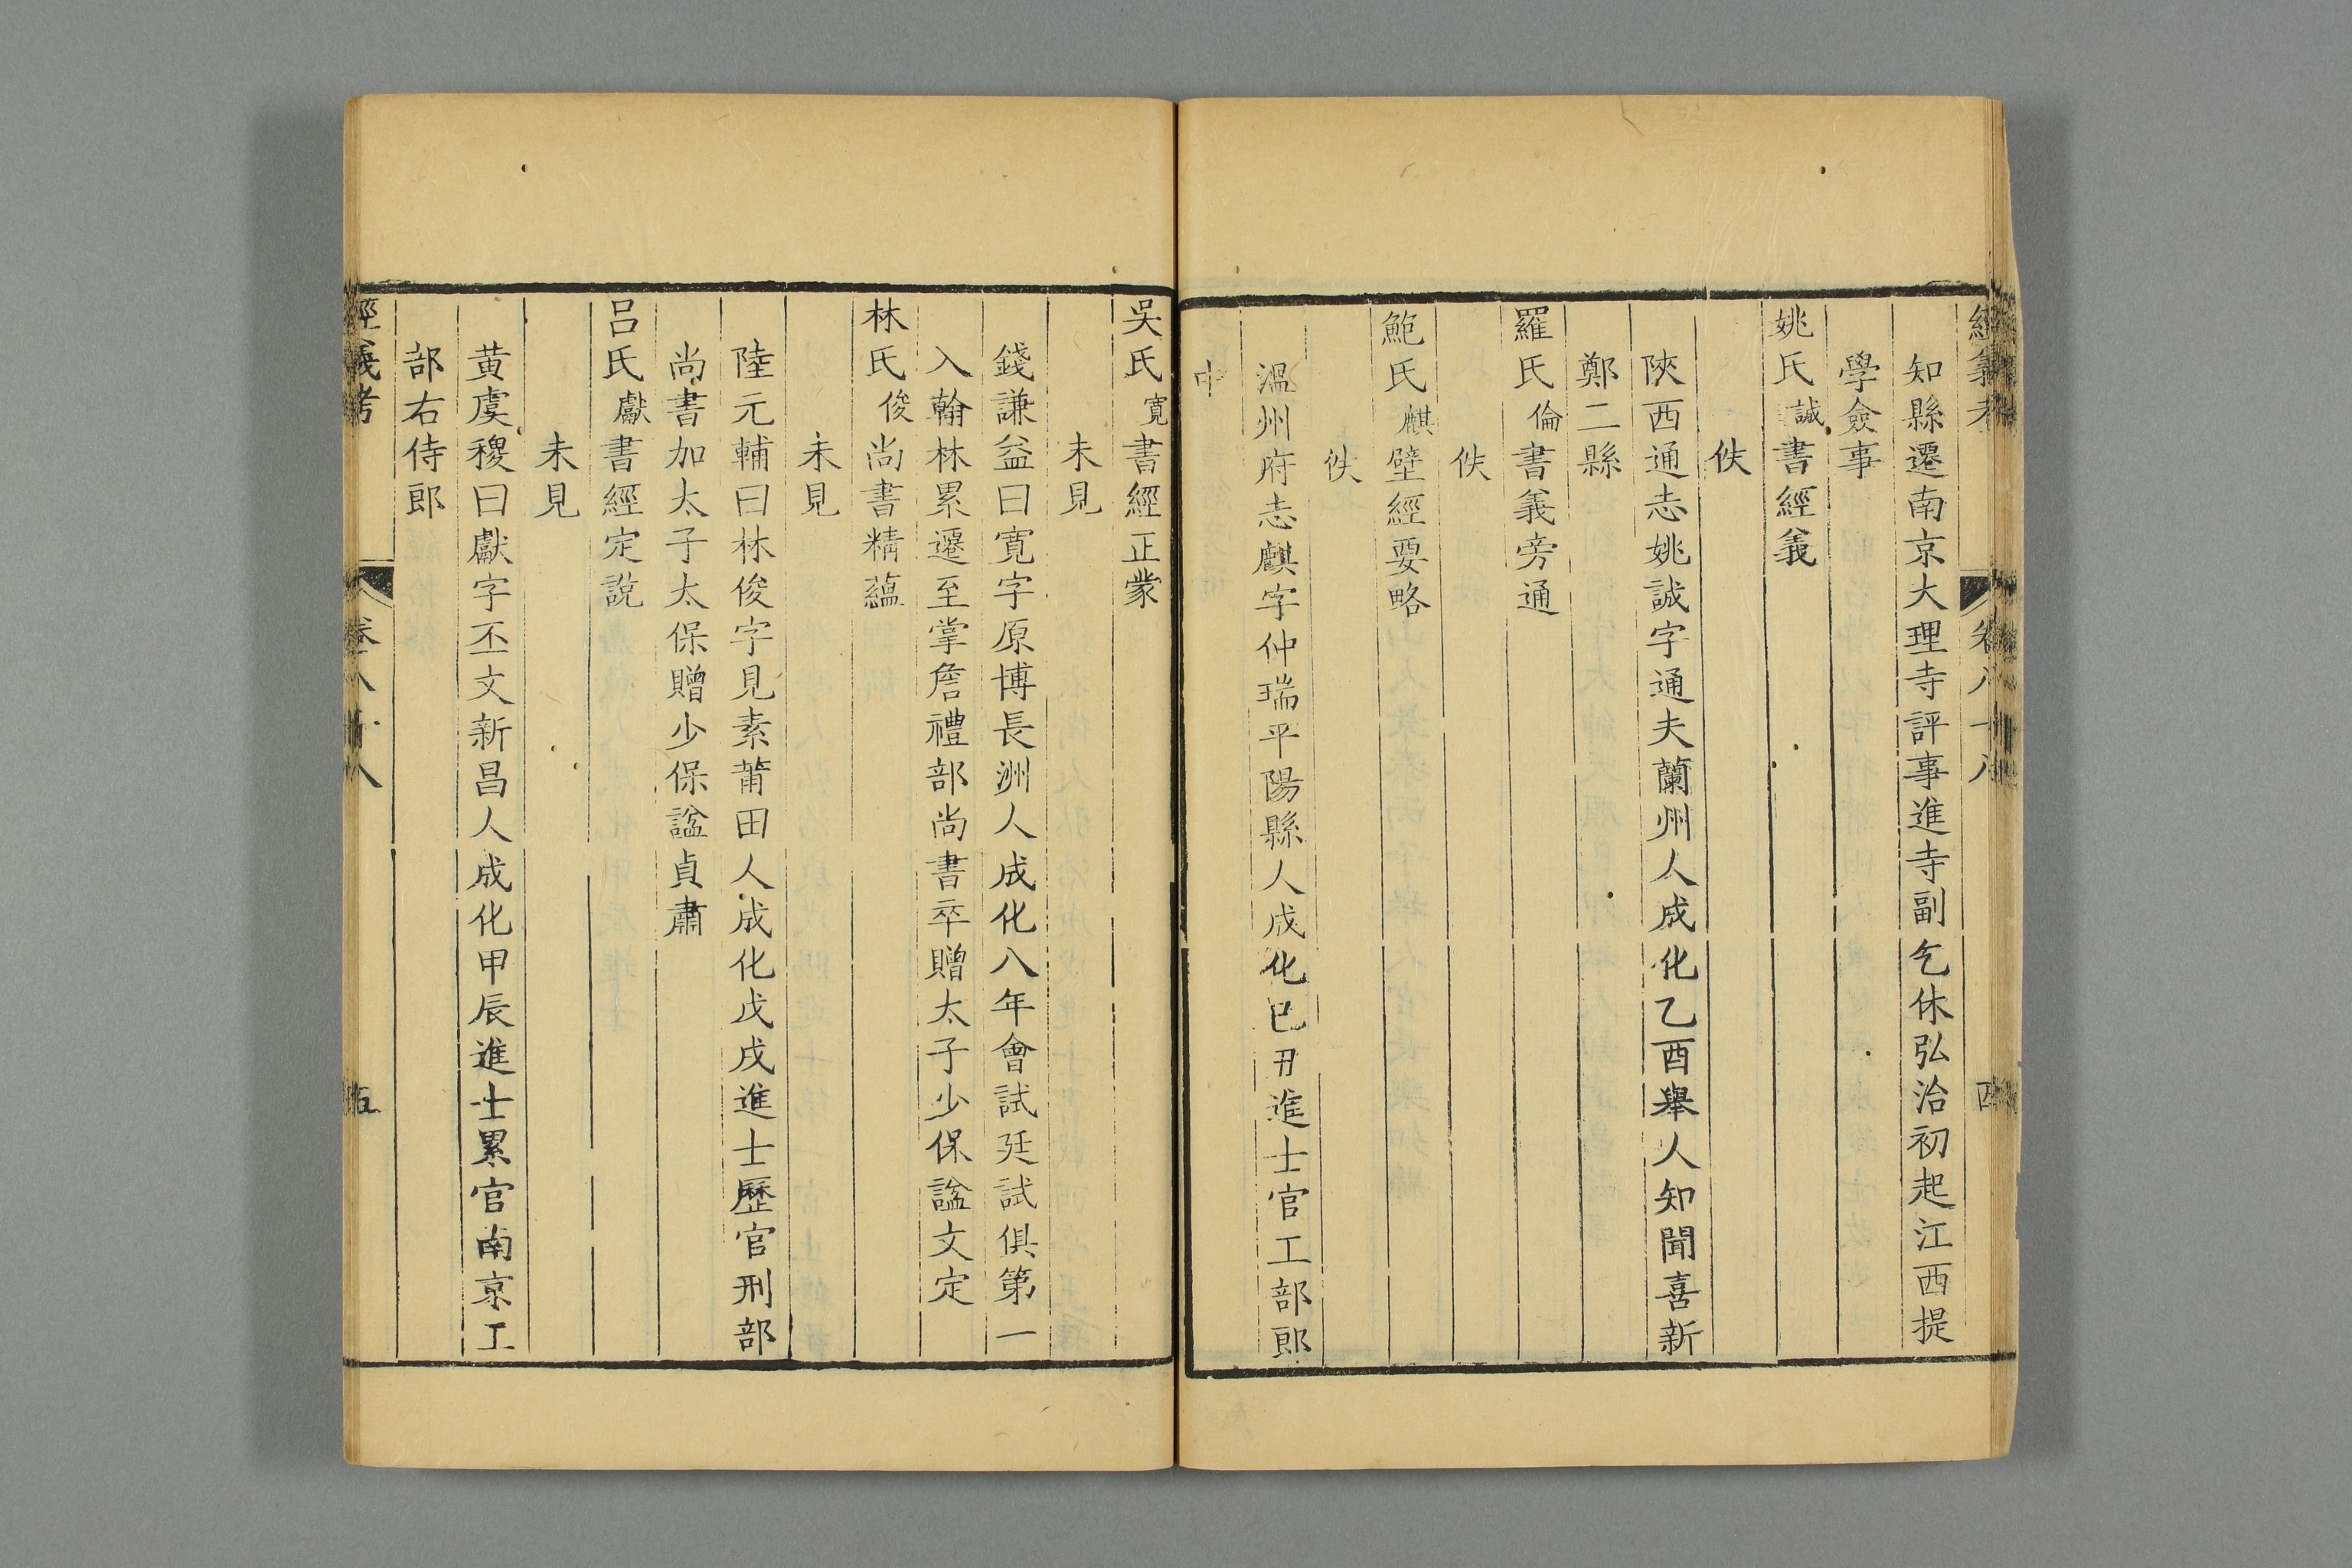 經義考 卷八十八 四
知縣遷南京大理寺評事進寺副乞休弘治初起江西提
學僉事
姚氏誠書經義
佚
陝西通志姚誠字通夫蘭州人成化乙酉舉人知聞喜新
鄭二縣
羅氏倫書義旁通
佚
鮑氏麒壁經要略
佚
溫州府志麒字仲瑞平陽縣人成化已丑進士官工部郎
中
吳氏寬書經正蒙
未見
錢謙益曰寬字原博長洲人成化八年會試廷試俱第一
入翰林累遷至掌詹禮部尚書卒贈太子少保諡文定
林氏俊尚書精蘊
未見
陸元輔曰林俊字見素莆田人成化戊戌進士歷官刑部
尚書加太子太保贈少保諡貞肅
呂氏獻書經定說
未見
黃虞稷曰獻字丕文新昌人成化甲辰進士累官南京工
部右侍郎
經義考 卷八十八 五